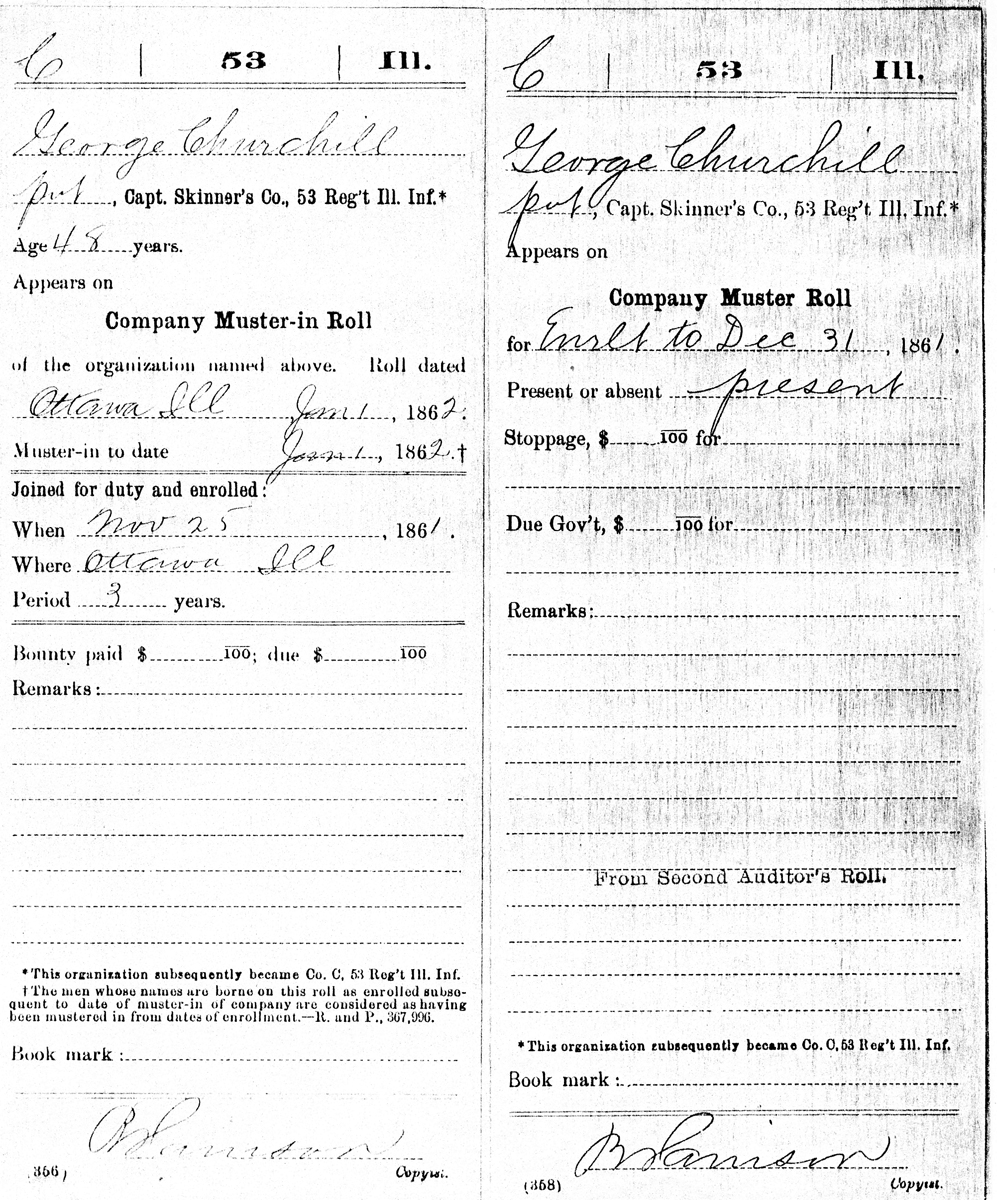 C | 53 | Ill.
George Churchill
pvt, Capt. Skinner's Co., 53 Reg't Ill. Inf.*
Age 48 years.
Appears on
Company Muster-in Roll
of the organization named above. Roll dated
Ottawa Ill Jan 1, 1862.
Muster-in to date Jan 1, 1862.†
Joined for duty and enrolled:
When Nov 25, 1861.
Where Ottawa Ill
Period 3 years.
Bounty paid $ 100; due $ 100
Remarks:
*This organization subsequently became Co. C, 53 Reg't Ill. Inf.
†The men whose names are borne on this roll as enrolled subse-
quent to date of muster-in of company are considered as having
been mustered in from dates of enrollment.—R. and P., 367,996.
Book mark:
(356) Copyist.
C | 53 | Ill.
George Churchill
pvt, Capt. Skinner's Co., 53 Reg't Ill. Inf.*
Appears on
Company Muster Roll
for Enrlt to Dec 31, 1861.
Present or absent present
Stoppage, $ 100 for
Due Gov't, $ 100 for
Remarks:
From Second Auditor's Roll.
*This organization subsequently became Co. C, 53 Reg't Ill. Inf.
Book mark:
(358) Copyist.